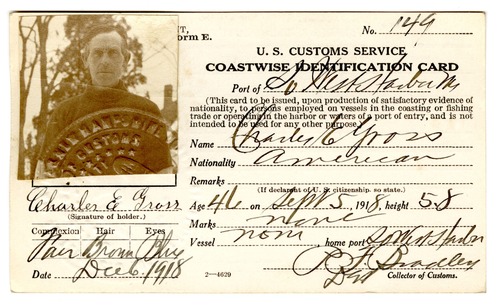 orm E.
No. 149
U. S. CUSTOMS SERVICE,
COASTWISE IDENTIFICATION CARD
Port of So West Harbor Me
(This card to be issued, upon production of satisfactory evidence of
nationality, to persons employed on vessels in the coasting or fishing
trade or operating in the harbor or waters of a port of entry, and is not
intended to be used for any other purpose.)
Name Charles E Gross
Nationality American
Remarks
(If declarant of U. S. citizenship, so state.)
Age 46 on Sept 5, 1918, height 5-8
Marks none
Vessel none, home port So West Harbor
Collector of Customs.
Charles E Gross
(Signature of holder.)
Complexion Hair Eyes
Fair Brown Blue
Date Dec 6, 1918
2—4629
CUSTOMS